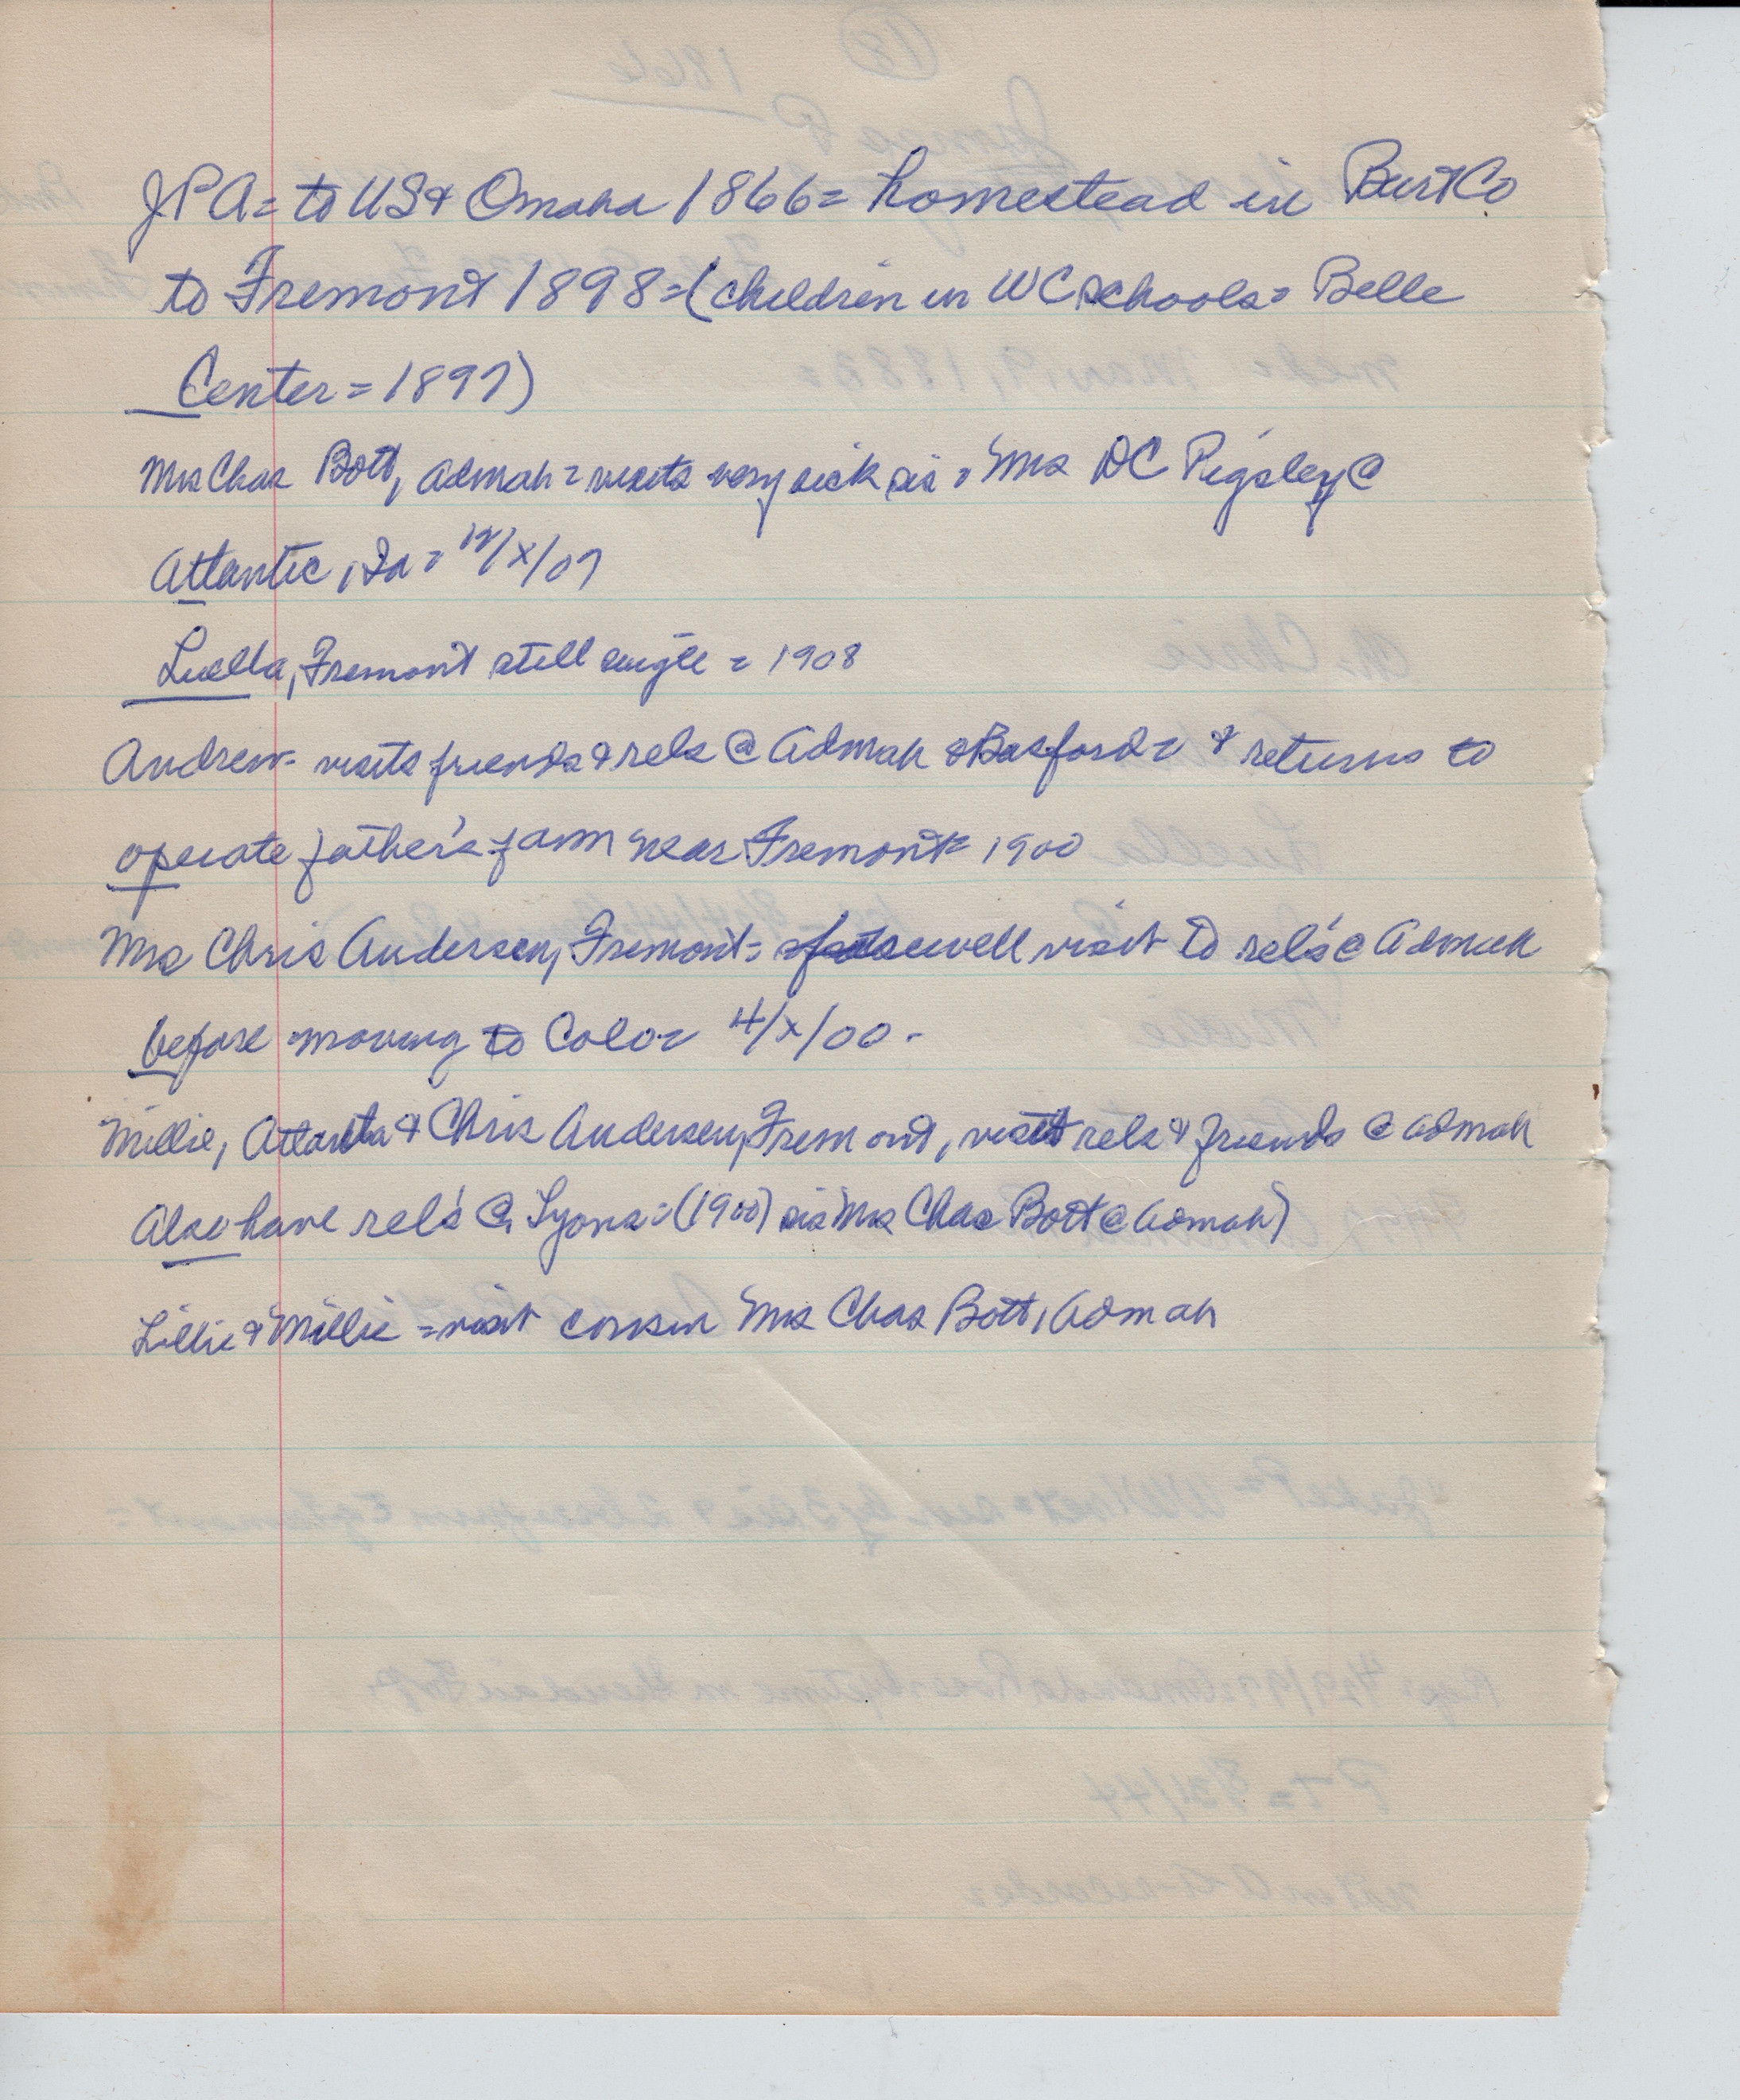 JPA = to US & Omaha 1866 = homestead in Burt Co
to Fremont 1898 = (children in WC schools = Belle
Center = 1897)
Mrs Chas Bott, Admah = visits very sick sis = Mrs DC Pigsley @
Atlantic, Ia = 12/X/07
Luella, Fremont still single = 1908
Andrew - visits friends & rels @ Admah & Basford = & returns to
operate father's farm near Fremont = 1900
Mrs Chris Andersen, Fremont = farewell visit to rel's @ Admah
before moving to Colo = 4/X/00 -
Millie, Atlanta & Chris Andersen, Fremont, visit rels & friends @ Admah
Also have rel's @ Lyons = (1900) sis Mrs Chas Bott @ Admah)
Lillie & Millie = visit cousin Mrs Chas Bott, Admah